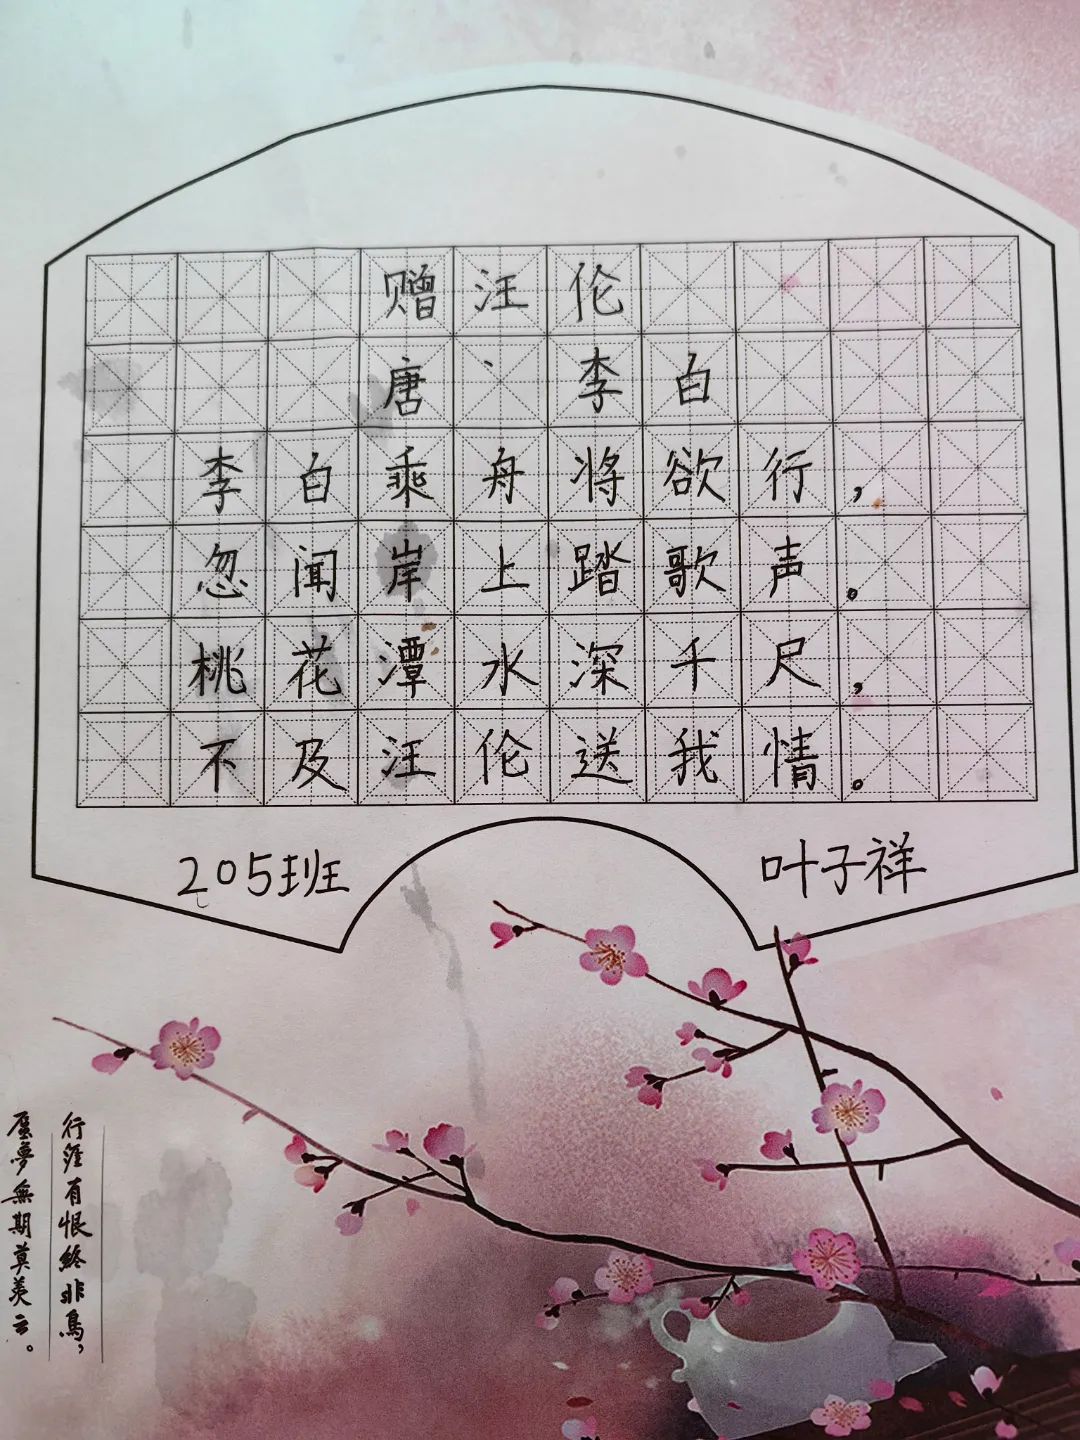 赠汪伦
唐、李白
李白乘舟将欲行，
忽闻岸上踏歌声。
桃花潭水深千尺，
不及汪伦送我情。
205班
叶子祥
行𮣳有恨終非鳥，
蜃夢無期莫羨云。